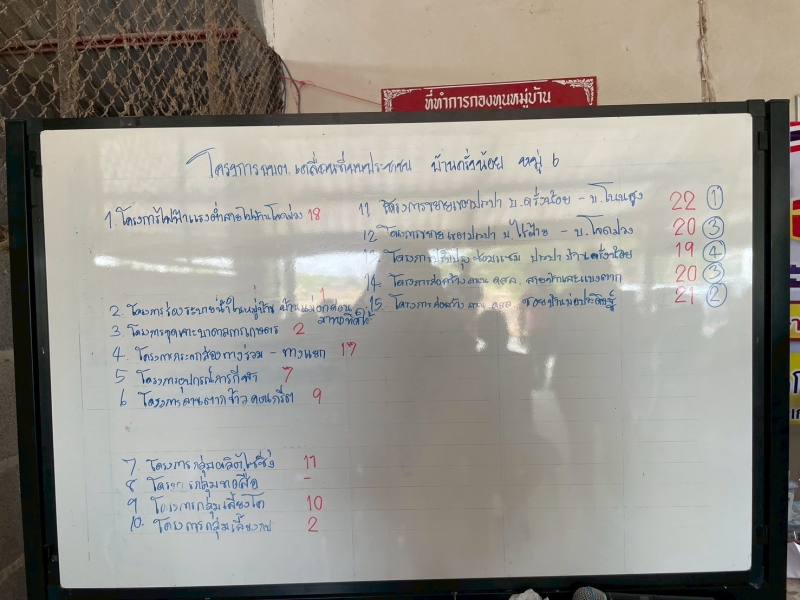 ที่ทำการกองทุนหมู่บ้าน
โครงการ อบต. เคลื่อนที่พบประชาชน บ้านครั่งน้อย หมู่ 6
1. โครงการไฟฟ้าแรงต่ำสายไปบ้านโคกม่วง 18
2. โครงการร่องระบายน้ำในหมู่บ้าน 1
3 โครงการขุดเจาะบาดาลการเกษตร 2
4. โครงการกระจกส่องทางร่วม - ทางแยก 17
5 โครงการอุปกรณ์การกีฬา 7
6 โครงการลานตากข้าวคอนกรีต 9
7. โครงการกลุ่ม 11
8 โครงการกลุ่มทอเสื่อ -
9 โครงการกลุ่มเลี้ยงโค 10
10. โครงการกลุ่มเลี้ยง 2
11 โครงการขยายเขตประปา บ.ครั่งน้อย - บ.โนนสูง 22 1
12 โครงการขยายเขตประปา บ.ไร่ฝ้าย - บ.โคกม่วง 20 3
13 โครงการปรับปรุงซ่อมแซม ประปา บ้านครั่งน้อย 19 4
14. โครงการก่อสร้างถนน คสล. 20 3
15. โครงการก่อสร้าง ถนน คสล. ซอยบ้านพ่อประดิษฐ์ 21 2